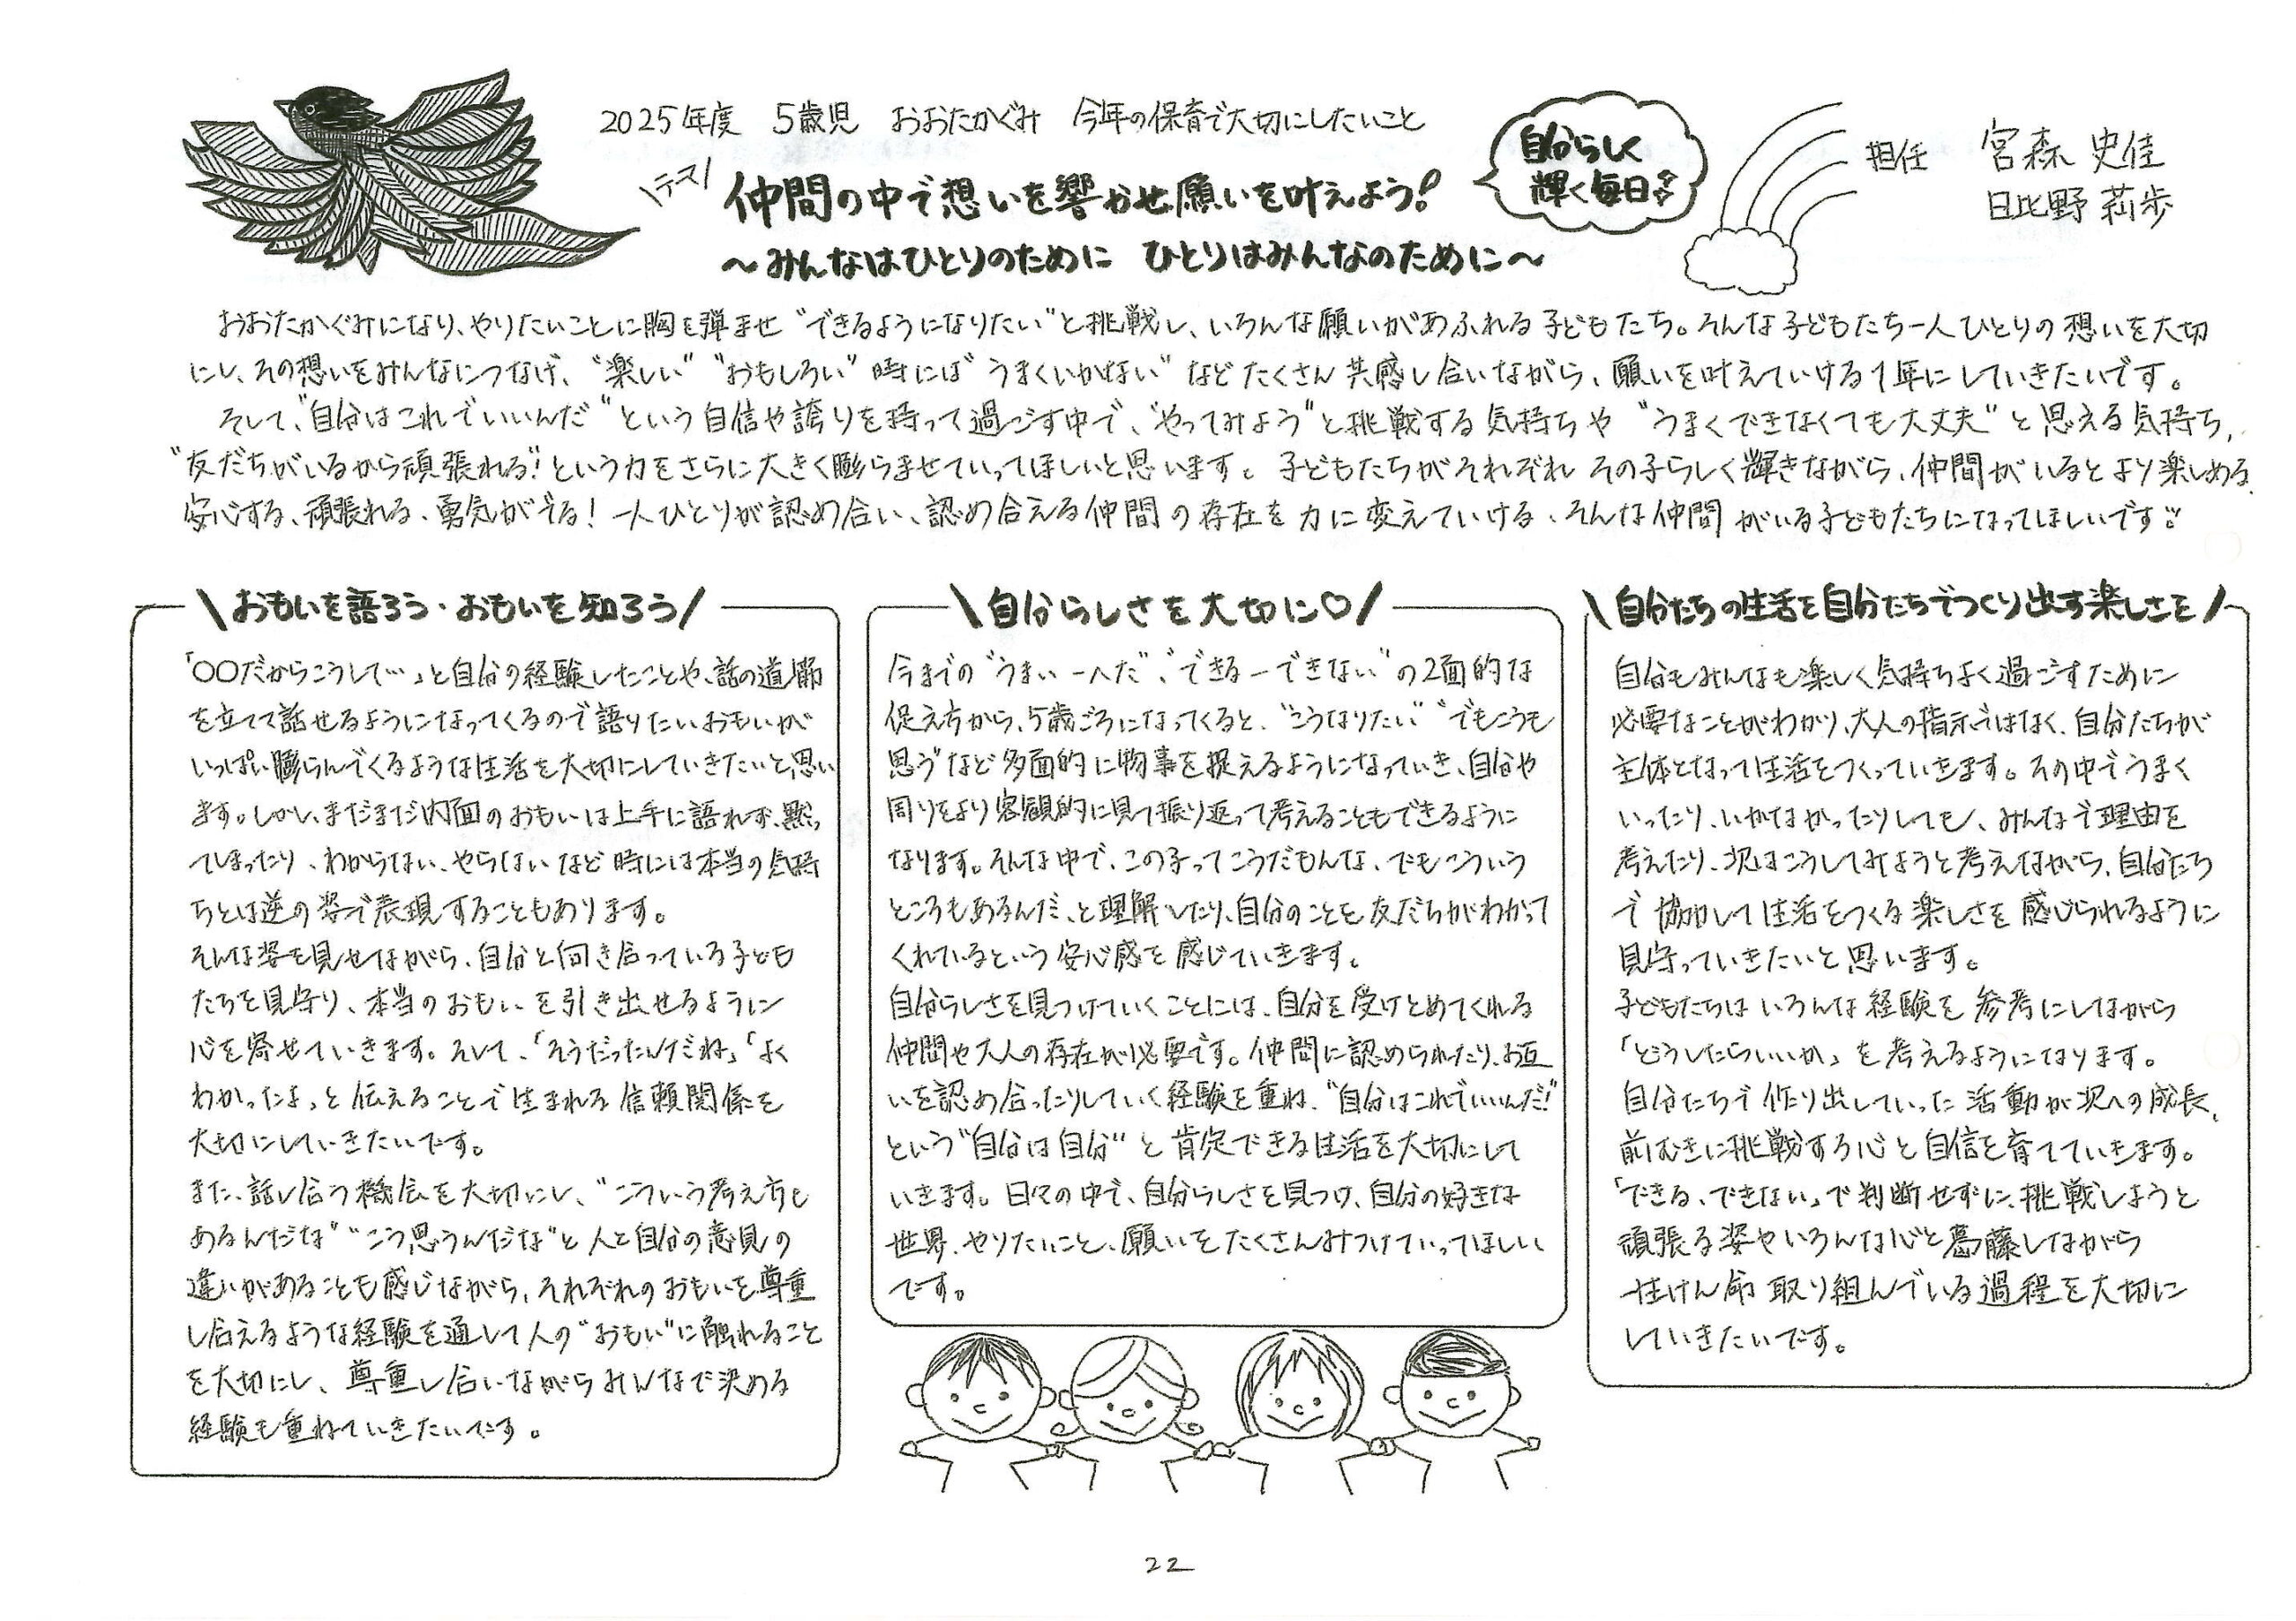 2025年度 5歳児 おおたかぐみ 今年の保育で大切にしたいこと
\テーマ/
仲間の中で想いを響かせ願いを叶えよう!
～みんなはひとりのために ひとりはみんなのために～
自分らしく
輝く毎日♪
担任 宮森 史佳
日比野 莉歩
おおたかぐみになり、やりたいことに胸を弾ませ“できるようになりたい”と挑戦し、いろんな願いがあふれる子どもたち。そんな子どもたち一人ひとりの想いを大切
にし、その想いをみんなにつなげ、“楽しい”“おもしろい”時には“うまくいかない”などたくさん共感し合いながら、願いを叶えていける1年にしていきたいです。
そして、“自分はこれでいいんだ”という自信や誇りを持って過ごす中で、“やってみよう”と挑戦する気持ちや“うまくできなくても大丈夫”と思える気持ち、
“友だちがいるから頑張れる!”という力をさらに大きく膨らませていってほしいと思います。子どもたちがそれぞれその子らしく輝きながら、仲間がいるとより楽しめる、
安心する、頑張れる、勇気がでる! 一人ひとりが認め合い、認め合える仲間の存在を力に変えていける、そんな仲間がいる子どもたちになってほしいです。
\おもいを語ろう・おもいを知ろう/
「○○だからこうして…」と自分の経験したことや、話の道筋
を立てて話せるようになってくるので語りたいおもいが
いっぱい膨らんでくるような生活を大切にしていきたいと思い
ます。しかし、まだまだ内面のおもいは上手に語れず、黙っ
てしまったり、わからない、やらないなど時には本当の気持
ちとは逆の姿で表現することもあります。
そんな姿を見せながら、自分と向き合っている子ども
たちを見守り、本当のおもいを引き出せるように
心を寄せていきます。そして、「そうだったんだね」「よく
わかったよ」と伝えることで生まれる信頼関係を
大切にしていきたいです。
また、話し合う機会を大切にし、“こういう考え方も
あるんだな”“こう思うんだな”と人と自分の意見の
違いがあることも感じながら、それぞれのおもいを尊重
し合えるような経験を通して人の“おもい”に触れること
を大切にし、尊重し合いながらみんなで決める
経験も重ねていきたいです。
\自分らしさを大切に♡/
今までの“うまい－へた”、“できる－できない”の2面的な
捉え方から、5歳ごろになってくると、“こうなりたい”“でもこうも
思う”など多面的に物事を捉えるようになっていき、自分や
周りをより客観的に見て振り返って考えることもできるように
なります。そんな中で、この子ってこうだもんな、でもこういう
ところもあるんだ、と理解したり、自分のことを友だちがわかって
くれているという安心感を感じていきます。
自分らしさを見つけていくことには、自分を受けとめてくれる
仲間や大人の存在が必要です。仲間に認められたり、お互
いを認め合ったりしていく経験を重ね、“自分はこれでいいんだ!”
という“自分は自分”と肯定できる生活を大切にして
いきます。日々の中で、自分らしさを見つけ、自分の好きな
世界、やりたいこと、願いをたくさんみつけていってほしい
です。
\自分たちの生活を自分たちでつくり出す楽しさを/
自分もみんなも楽しく気持ちよく過ごすために
必要なことがわかり、大人の指示ではなく、自分たちが
主体となって生活をつくっていきます。その中でうまく
いったり、いかなかったりしても、みんなで理由を
考えたり、次はこうしてみようと考えながら、自分たち
で協力して生活をつくる楽しさを感じられるように
見守っていきたいと思います。
子どもたちはいろんな経験を参考にしながら
「どうしたらいいか」を考えるようになります。
自分たちで作り出していった活動が次への成長、
前むきに挑戦する心と自信を育てていきます。
「できる、できない」で判断せずに、挑戦しようと
頑張る姿やいろんな心と葛藤しながら
一生けん命取り組んでいる過程を大切に
していきたいです。
22